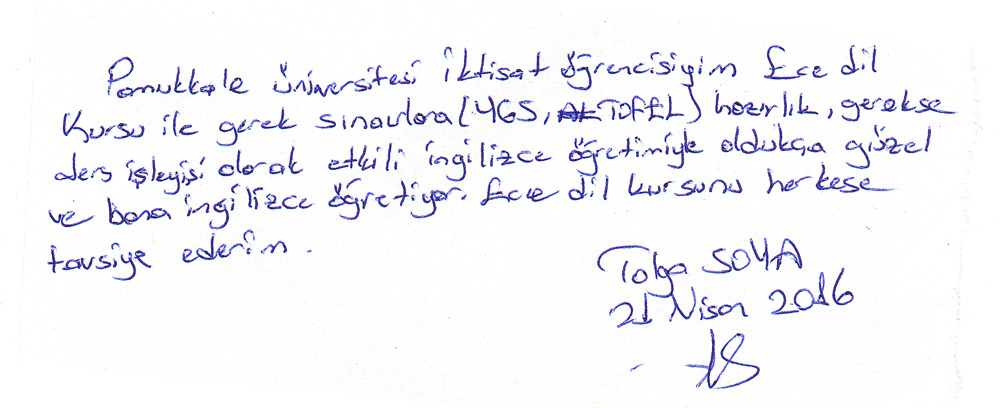 Pamukkale üniversitesi iktisat öğrencisiyim Ece dil
Kursu ile gerek sınavlara (YGS, TOFEL) hazırlık, gerekse
ders işleyişi olarak etkili ingilizce öğretimiyle oldukça güzel
ve bana ingilizce öğretiyor. Ece dil kursunu herkese
tavsiye ederim.
Tolga SOYA
21 Nisan 2016